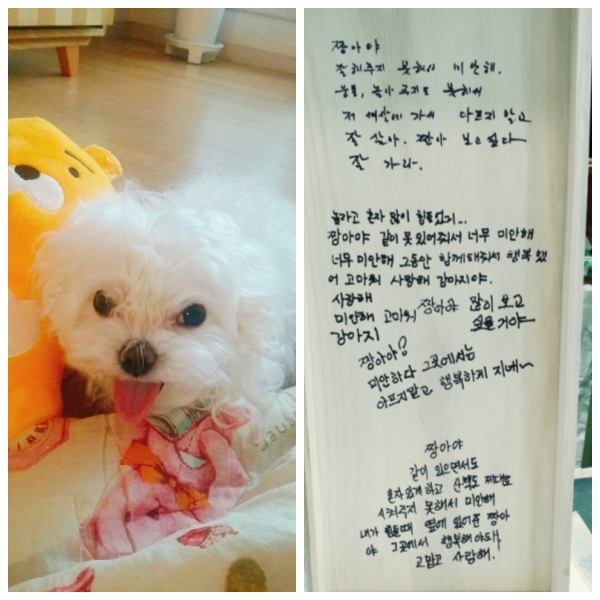 짱아야
잘해주지 못해서 미안해.
눈물, 놀아주지도 못해서
저 세상에 가서 아프지 않고
잘 살아. 짱아 보고싶다
잘 가라.
놀라고 혼자 많이 힘들었지...
짱아야 같이 못있어줘서 너무 미안해
너무 미안해 그동안 함께해줘서 행복했
어 고마워 사랑해 강아지야.
사랑해
미안해 고마워 짱아야 많이 보고
싶을거야
강아지
짱아야
미안하다 그곳에서는
아프지말고 행복하게 지내~
짱아야
같이 있으면서도
혼자있게하고 산책도 제대로
시켜주지 못해서 미안해
내가 힘들때 옆에 있어준 짱아
야 그곳에서 행복해야돼
고맙고 사랑해.